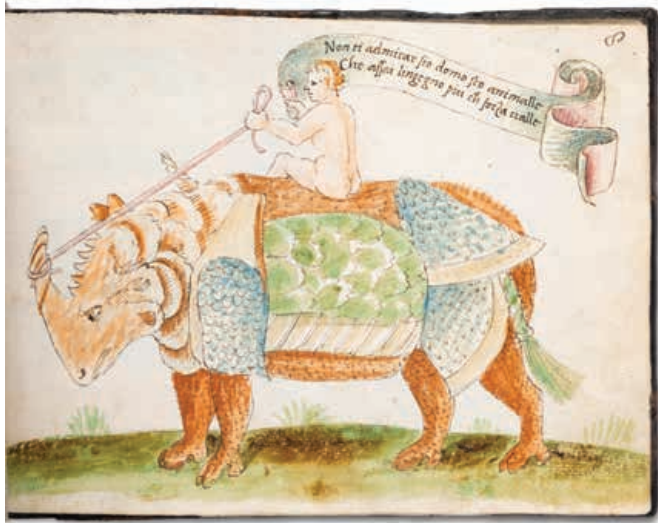 Non ti admirar s'io domo sto animalle
Che assai l'ingegno piu ch forza valle